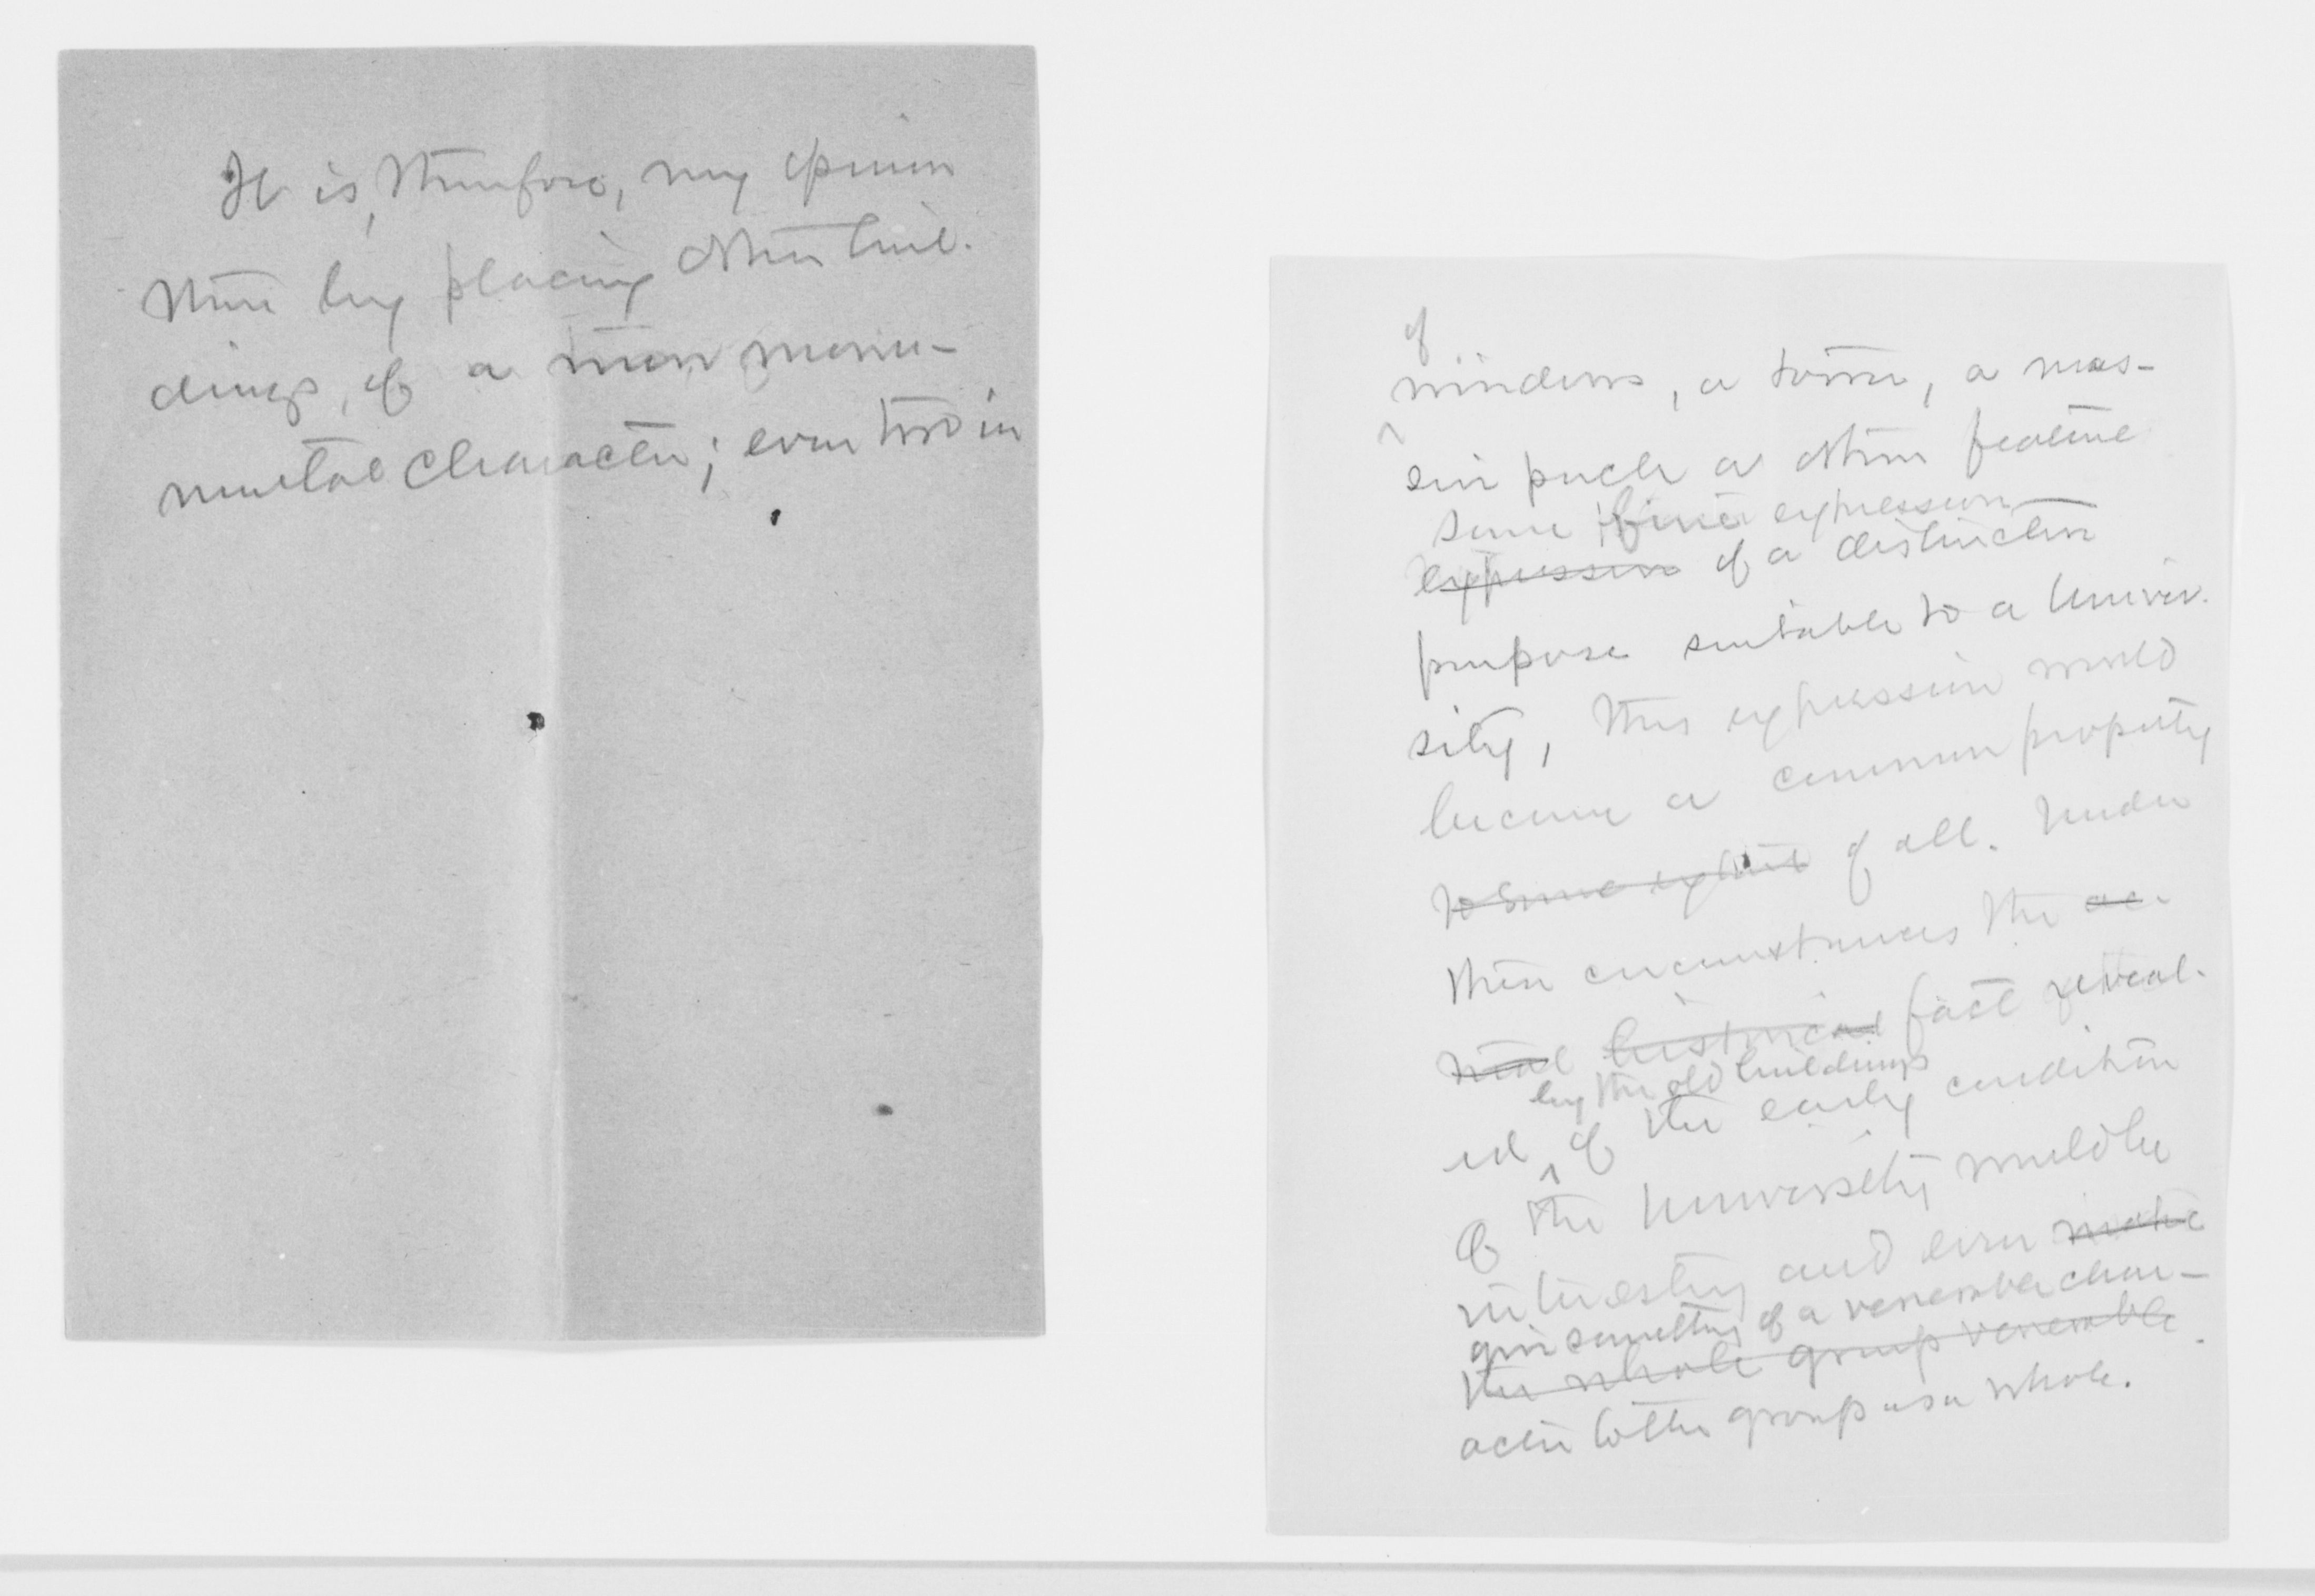 It is, therefore, my opinion
that by placing other buil-
dings, of a more monu-
mental character; even two in
of
windows, a tower, a mas-
sive porch or other feature
some finer expression
expression of a distinction
purpose suitable to a Univer-
sity, this expression would
become a common property
to some extent of all. Under
these circumstances the ac-
tual historical fact reveal-
by the old buildings
ed ^ of the early condition
of the University would be
interesting and even make
give something of a venerable char-
the whole group venerable.
acter to the group as a whole.